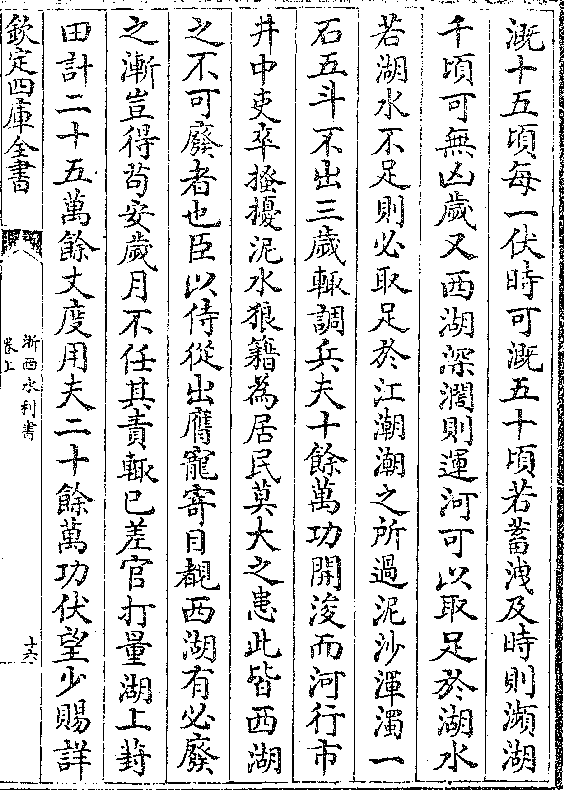 溉十五頃每一伏時可溉五十頃若蓄洩及時則瀕湖
千頃可無凶歲又西湖深濶則運河可以取足於湖水
若湖水不足則必取足於江潮潮之所過泥沙渾濁一
石五斗不出三歲輒調兵夫十餘萬功開浚而河行市
井中吏卒搔擾泥水狼籍為居民莫大之患此皆西湖
之不可廢者也臣以侍從出膺寵寄目覩西湖有必廢
之漸豈得苟安歲月不任其責輒已差官打量湖上葑
田計二十五萬餘丈度用夫二十餘萬功伏望少賜詳
欽定四庫全書
浙西水利書
卷上
十六